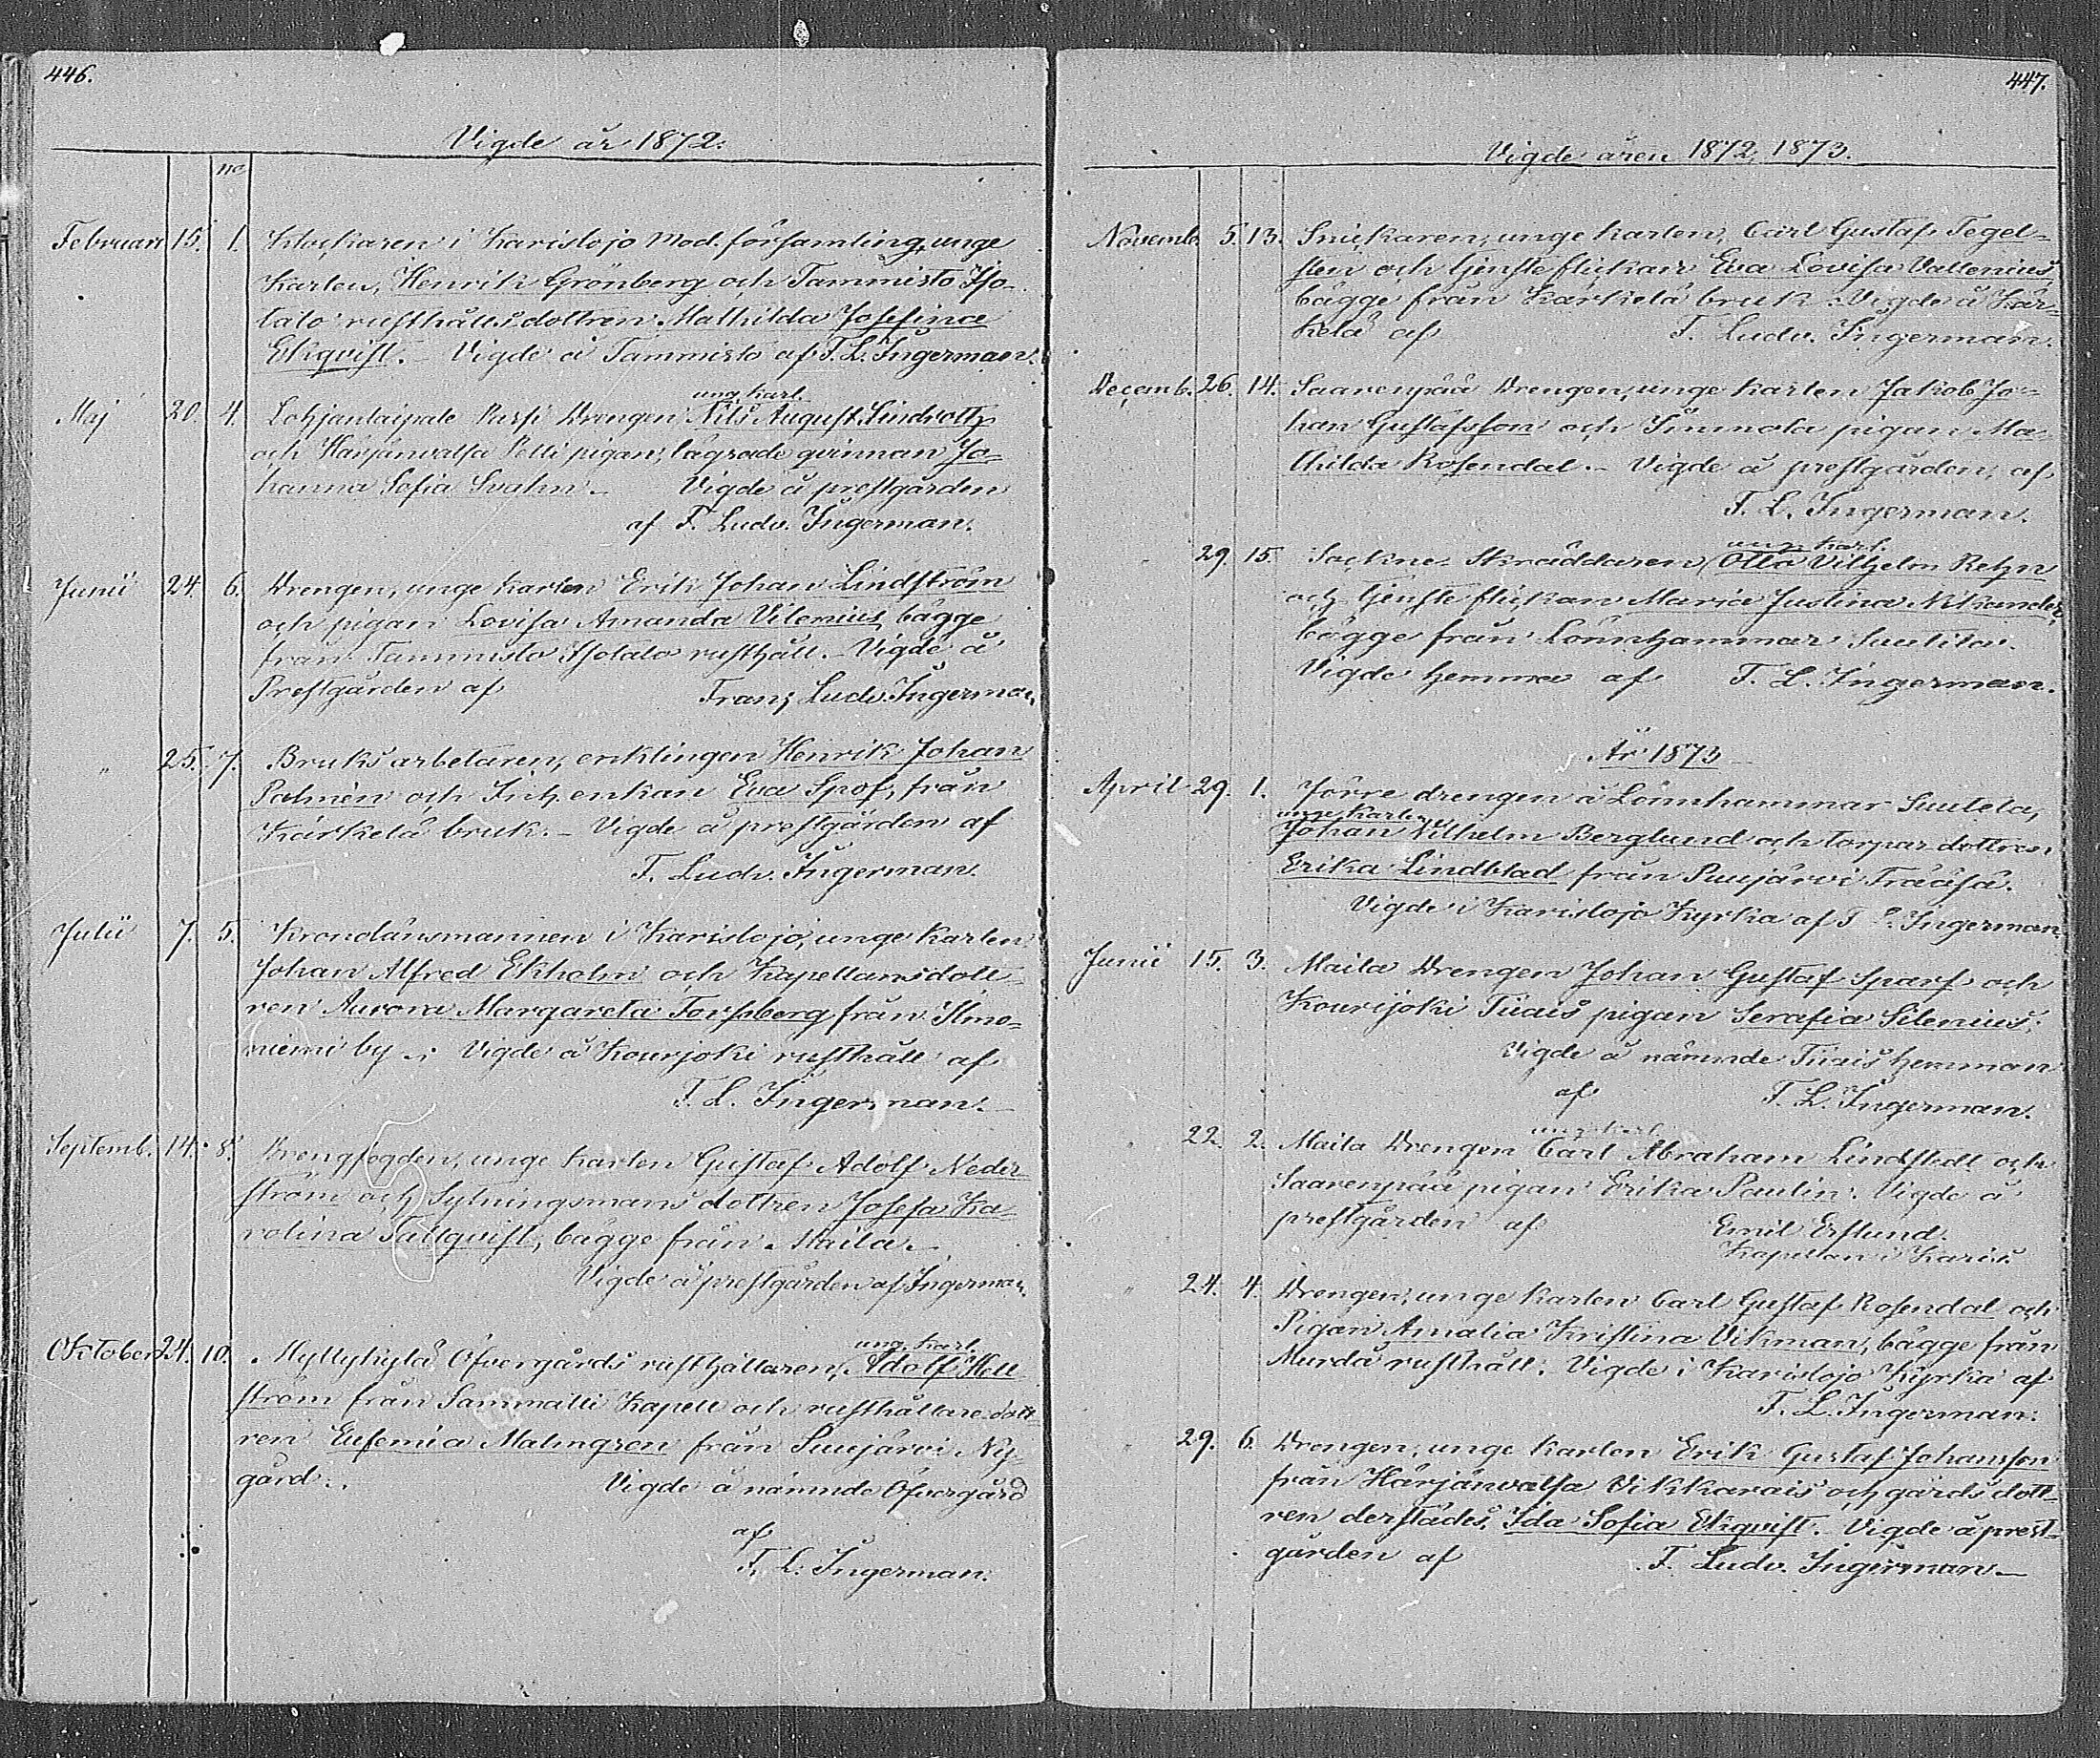 446.
Vigde år 1872.
no
Februari 15. 1. Klockaren i Karislojo Mod. församling, unge
Karlen, Henrik Grönberg och Tammisto Iso-
talo rusthålls dottren Mathilda Josefina
Ekqvist. – Vigde å Tammisto af F. L. Ingerman.
ung. karl.
Maj 20. 4. Lohjantaipale Pussi Drengen Nils August Lindroth
och Härjänvatsa Pelli pigan, lägrade qvinnan Jo-
hanna Sofia Svahn. – Vigde å prestgården
af F. Ludv. Ingerman.
Junii 24. 6. Drengen, unge karlen Erik Johan Lindström
och pigan Lovisa Amanda Vilenius, bägge
från Tammisto Isotalo rusthåll. – Vigde å
Prestgården af Franz Ludv. Ingerman
" 25. 7. Bruksarbetaren, enklingen Henrik Johan
Palmèn och enkan Eva Spof, från
Kärkelä bruk. – Vigde å prestgården af
F. Ludv. Ingerman.
Julii 7. 5. Kronolänsmannen i Karislojo, unge Karlen
Johan Alfred Ekholm och Kapellansdott-
ren Aurora Margareta Forssberg från Ilmo-
niemi by. – Vigde å Kourjoki rusthåll af
F. L. Ingerman. –
Septemb. 14. 8. Drengfogden, unge karlen Gustaf Adolf Neder
ström och Sytningsmans dottren Josefa Ka-
rolina Sallqvist, bägge från Maila. –
Vigde å prestgården af Ingerman.
ung. karl.
Oktober 24. 10. Myllykylä Öfvergårds rusthållaren, Adolf Hell
ström från Sammatti Kapell och rusthållare dott-
ren Eufemia Malmgren från Suujärvi Ny-
gård. . Vigde å nämnde Öfvergård
af
F. L. Ingerman.
447.
Vigde åren 1872, 1873.
Novemb. 5. 13. Snickaren, unge karlen, Carl Gustaf Tegel-
sten och tjenste flickan Eva Lovisa Vallenius,
bägge från Kärkelä bruk. Vigde å Kär-
kelä af F. Ludv. Ingerman.
Decemb. 26. 14. Saarenpää Drengen, unge karlen Jakob Jo-
han Gustafsson och pigan Ma-
thilda Rosendal. – Vigde å prestgården, af
F. L. Ingerman.
ung. karl.
29. 15. Sockne Skräddaren Otto Vilhelm Rehn
och tjenste flickan Maria Justina Nikander,
bägge från Lönnhammar Suutila.
Vigde hemma af F. L. Ingerman.
År 1873
April 29. 1. Jörre drengen å Lönnhammar Suutela,
unge karlen
Johan Vilhelm Berglund och torpar dottren
Erika Lindblad från Puujärvi Trääsä.
Vigde i Karislojo Kyrka af F. L. Ingerman.
Junii 15. 3. Maila Drengen Johan Gustaf Sparf och
Kourijoki Tiiais pigan Serafia Silenius.
Vigde å nämnde Tiiais hemman
af F. L. Ingerman.
ung. karl.
" 22. 2. Maila Drengen Carl Abraham Lindstedt och
Saarenpää pigan Erika Paulin. Vigde å
prestgården af Emil Erslund.
Kapellan i Karis.
" 24. 4. Drengen, unge karlen Carl Gustaf Rosendal och
Pigan Amalia Kristina Vikman, bägge från
Murda rusthåll. Vigde i Karislojo Kyrka af
F. L. Ingerman.
" 29. 6. Drengen, unge karlen Erik Gustaf Johansson
från Härjänvatsa Vikkarais och gårds dott-
ren derstädes, Ida Sofia Ekqvist. Vigde å prest-
gården af F. Ludv. Ingerman. –